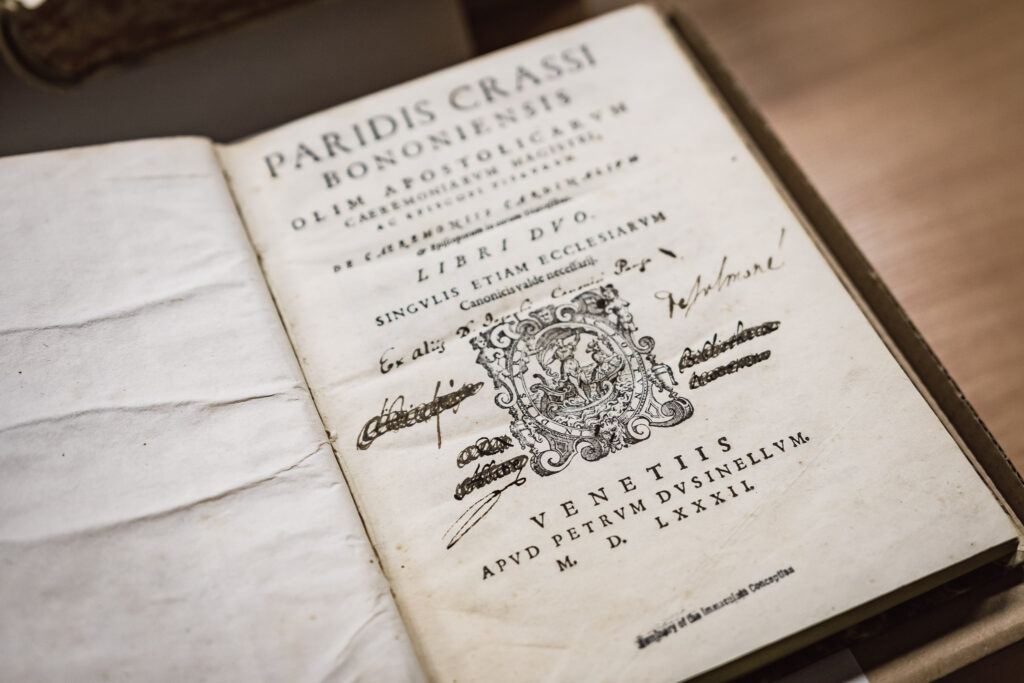 PARIDIS CRASSI
BONONIENSIS
OLIM APOSTOLICARVM
CAEREMONIARVM MAGISTRI,
AC EPISCOPI
DE CAEREMONIIS CARDINALIVM
& Episcoporum in eorum
LIBRI DVO.
SINGVLIS ETIAM ECCLESIARVM
Canonicis valde necessarij.
Ex alijs D.
VENETIIS
APVD PETRVM DVSINELLVM.
M. D. LXXXII.
Seminary of the Immaculate Conception